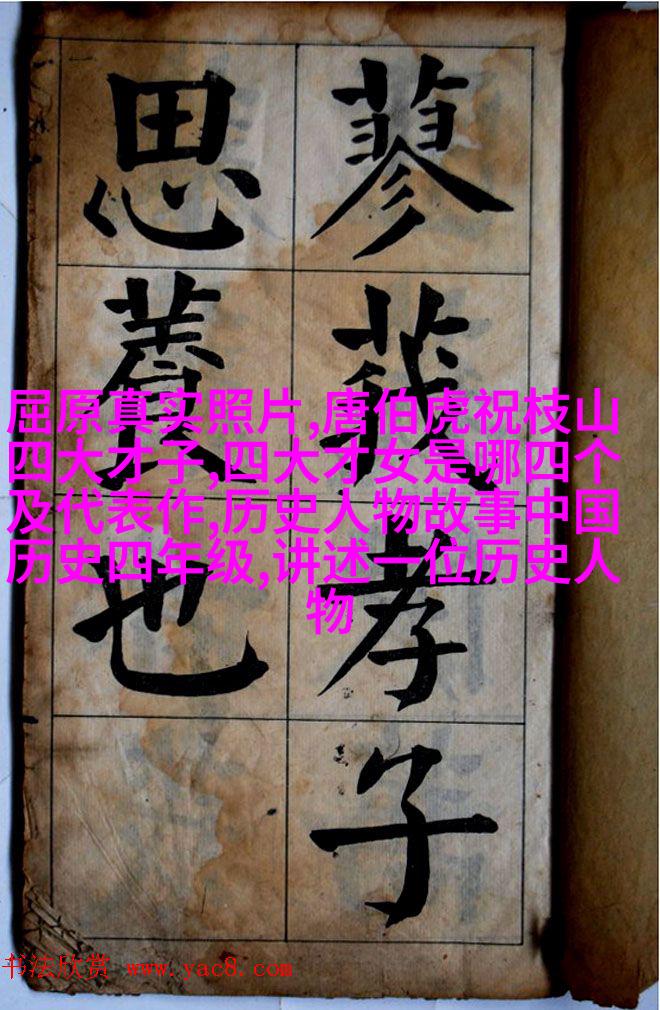 蓼莪孝子
思養也
屈原真实照片,唐伯虎祝枝山
四大才子,四大才女是哪四个
及代表作,历史人物故事中国
历史四年级,讲述一位历史人
物
书法欣赏 www.yac8.com